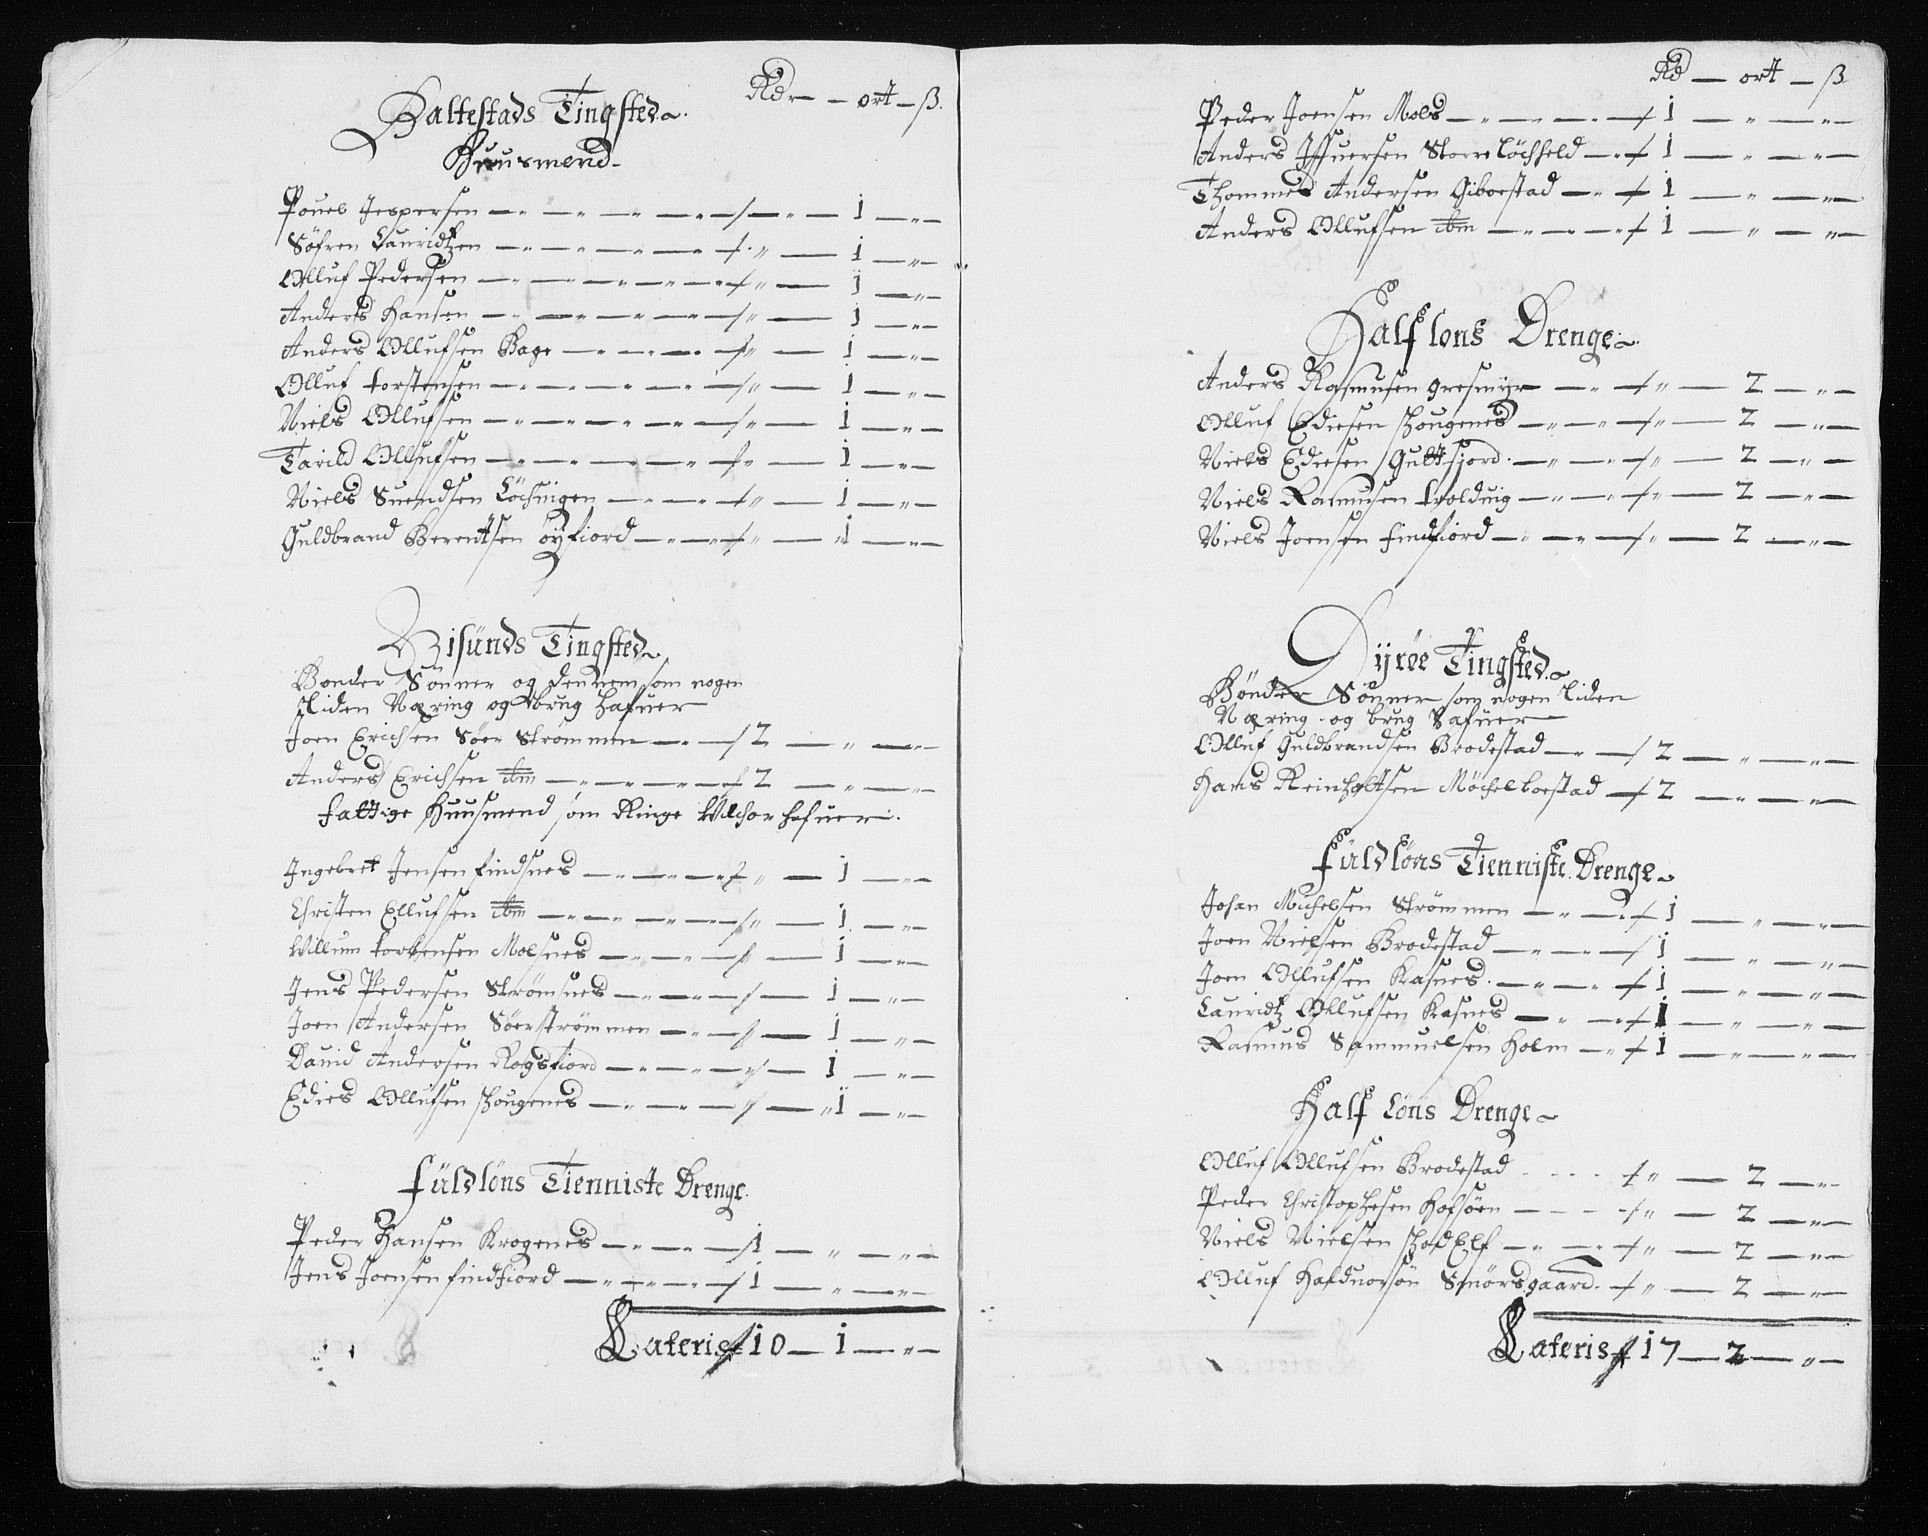 Rdr — ort — ß.
Baltestads Tingsted
Huusmend
Pouel Jespersen — 1 —
Søfren Lauridtzen — 1 —
Olluf Pedersen — 1 —
Anders Hansen — 1 —
Anders Ollufsen Bage — 1 —
Olluf torstensen — 1 —
Niels Ollufsen — 1 —
Tarild Ollufsen — 1 —
Niels Suendsen Löchuigen — 1 —
Guldbrand Berentsen öyfiord — 1 —
Gisunds Tingsted
Bonder Sönner og dennem som nogen
liden Næring og brug hafuer
Joen Erichsen Söer Strommen — 2 —
Anders Erichsen ibm — 2 —
fattige Huusmend som Ringe Vilchor hafuer
Ingebret Jensen findsnes — 1 —
Christen Ellufsen ibm — 1 —
Villum torbensen Molsnes — 1 —
Jens Pedersen Strömsnes — 1 —
Joen Andersen Söerströmmen — 1 —
Dauid Andersen Rogsfiord — 1 —
Edies Ollufsen schougenes — 1 —
füldlöns Tienniste Drenge
Peder Hansen Krogenes — 1 —
Jens Joensen findfiord — 1 —
Lateris 10 — 1 —
Rd — ort — ß
Peder Joensen Mols — 1 —
Anders Iffuersen Storre löchheld — 1 —
Thommes Andersen Giboestad — 1 —
Anders Ollufsen ibm — 1 —
Half lons Drenge
Anders Rasmusen gresmyr — 2 —
Olluf Ediesen schougenes — 2 —
Niels Ediesen Gultfiord — 2 —
Niels Rasmusen trolduig — 2 —
Niels Joensen findfiord — 2 —
Dyröe Tingsted
Bönder Sönner som nogen liden
Næring og brug hafuer
Olluf Guldbrandsen Brodestad — 2 —
Hans Reinholtsen Möchelboestad — 2 —
füldlöns Tienniste Drenge
Johan Michelsen Strömmen — 1 —
Joen Nielsen Brodestad — 1 —
Joen Ollufsen Kasnes — 1 —
Lauridtz Ollufsen Kasnes — 1 —
Rasmus Sammuelsen Holm — 1 —
Half Löns Drenge
Olluf Ollufsen Brodestad — 2 —
Peder Christophersen Hofsöen — 2 —
Niels Nielsen schodElf — 2 —
Olluf Halduorsön Smörsgaard — 2 —
Lateris 17 — 2 —